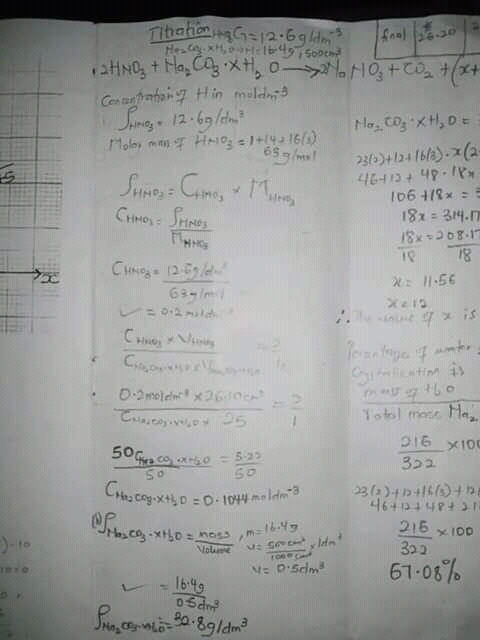 Titration H = G = 12.6g/dm⁻³
Na₂CO₃·xH₂O = 16.4g, 500cm³
2HNO₃ + Na₂CO₃·xH₂O → 2NaNO₃ + CO₂ + (x+
Concentration of H in moldm⁻³
ρHNO₃ = 12.6g/dm³
Molar mass of HNO₃ = 1+14+16(3)
63g/mol
ρHNO₃ = CHNO₃ × MHNO₃
CHNO₃ = ρHNO₃
MHNO₃
CHNO₃ = 12.6g/dm³
63g/mol
= 0.2moldm⁻³
CHNO₃ × VHNO₃ = 2
CNa₂CO₃·xH₂O × VNa₂CO₃·xH₂O 1
0.2moldm⁻³ × 26.10cm³ = 2
CNa₂CO₃·xH₂O × 25 1
50CNa₂CO₃·xH₂O = 5.22
50 50
CNa₂CO₃·xH₂O = 0.1044moldm⁻³
ρNa₂CO₃·xH₂O = mass , m=16.4g
Volume
V = 500cm³ × 1dm³
1000cm³
V = 0.5dm³
= 16.4g
0.5dm³
ρNa₂CO₃·xH₂O = 32.8g/dm³
final
26.20
2
Na₂CO₃·xH₂O =
23(2)+12+16(3)·x(2
46+12+48·18x
106+18x = 3
18x = 314.17
18x = 208.17
18 18
x = 11.56
x = 12
∴ The value of x is
Percentage of water
Crystallization is
mass of H₂O
Total mass Na₂
216 × 100
322
23(2)+12+16(3)+12(
46+12+48+21
216 × 100
322
67.08%
x